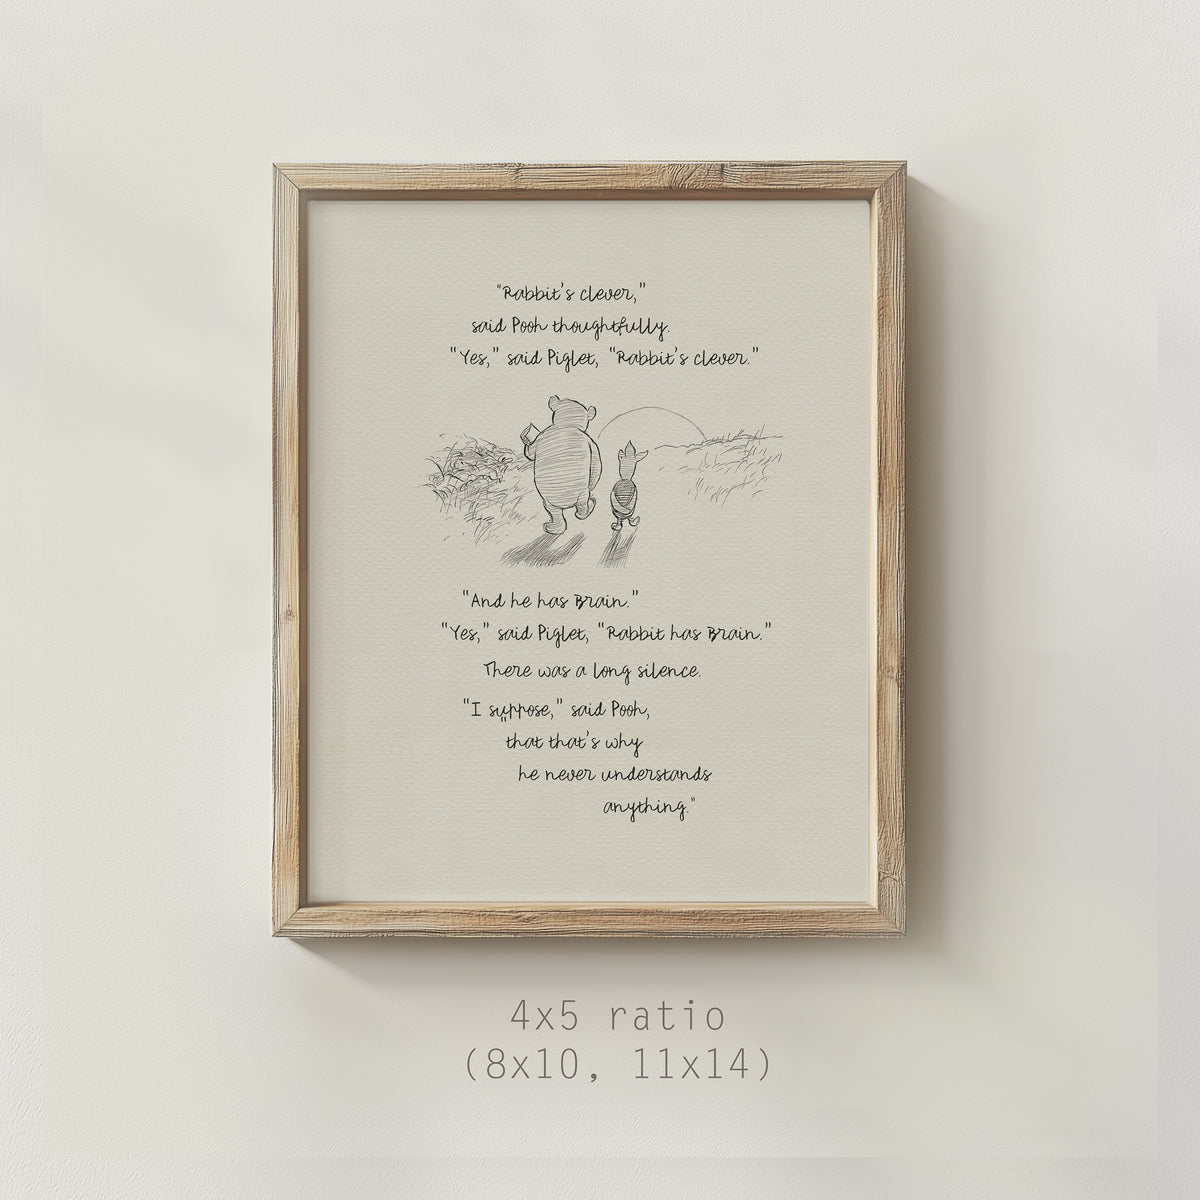 "Rabbit's clever,"
said Pooh thoughtfully.
"Yes," said Piglet, "Rabbit's clever."
"And he has Brain."
"Yes," said Piglet, "Rabbit has Brain."
There was a long silence.
"I suppose," said Pooh,
"that that's why
he never understands
anything."
4x5 ratio
(8x10, 11x14)